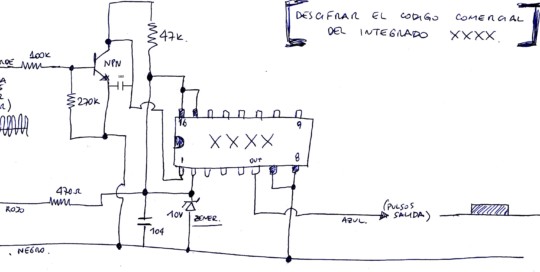 DESCIFRAR EL CODIGO COMERCIAL
DEL INTEGRADO XXXX.
47K
100K
NPN
270K
16
9
XXXX
1
OUT
8
470Ω
ROJO
10V
ZENER.
104
AZUL.
(PULSOS
SALIDA)
. NEGRO.